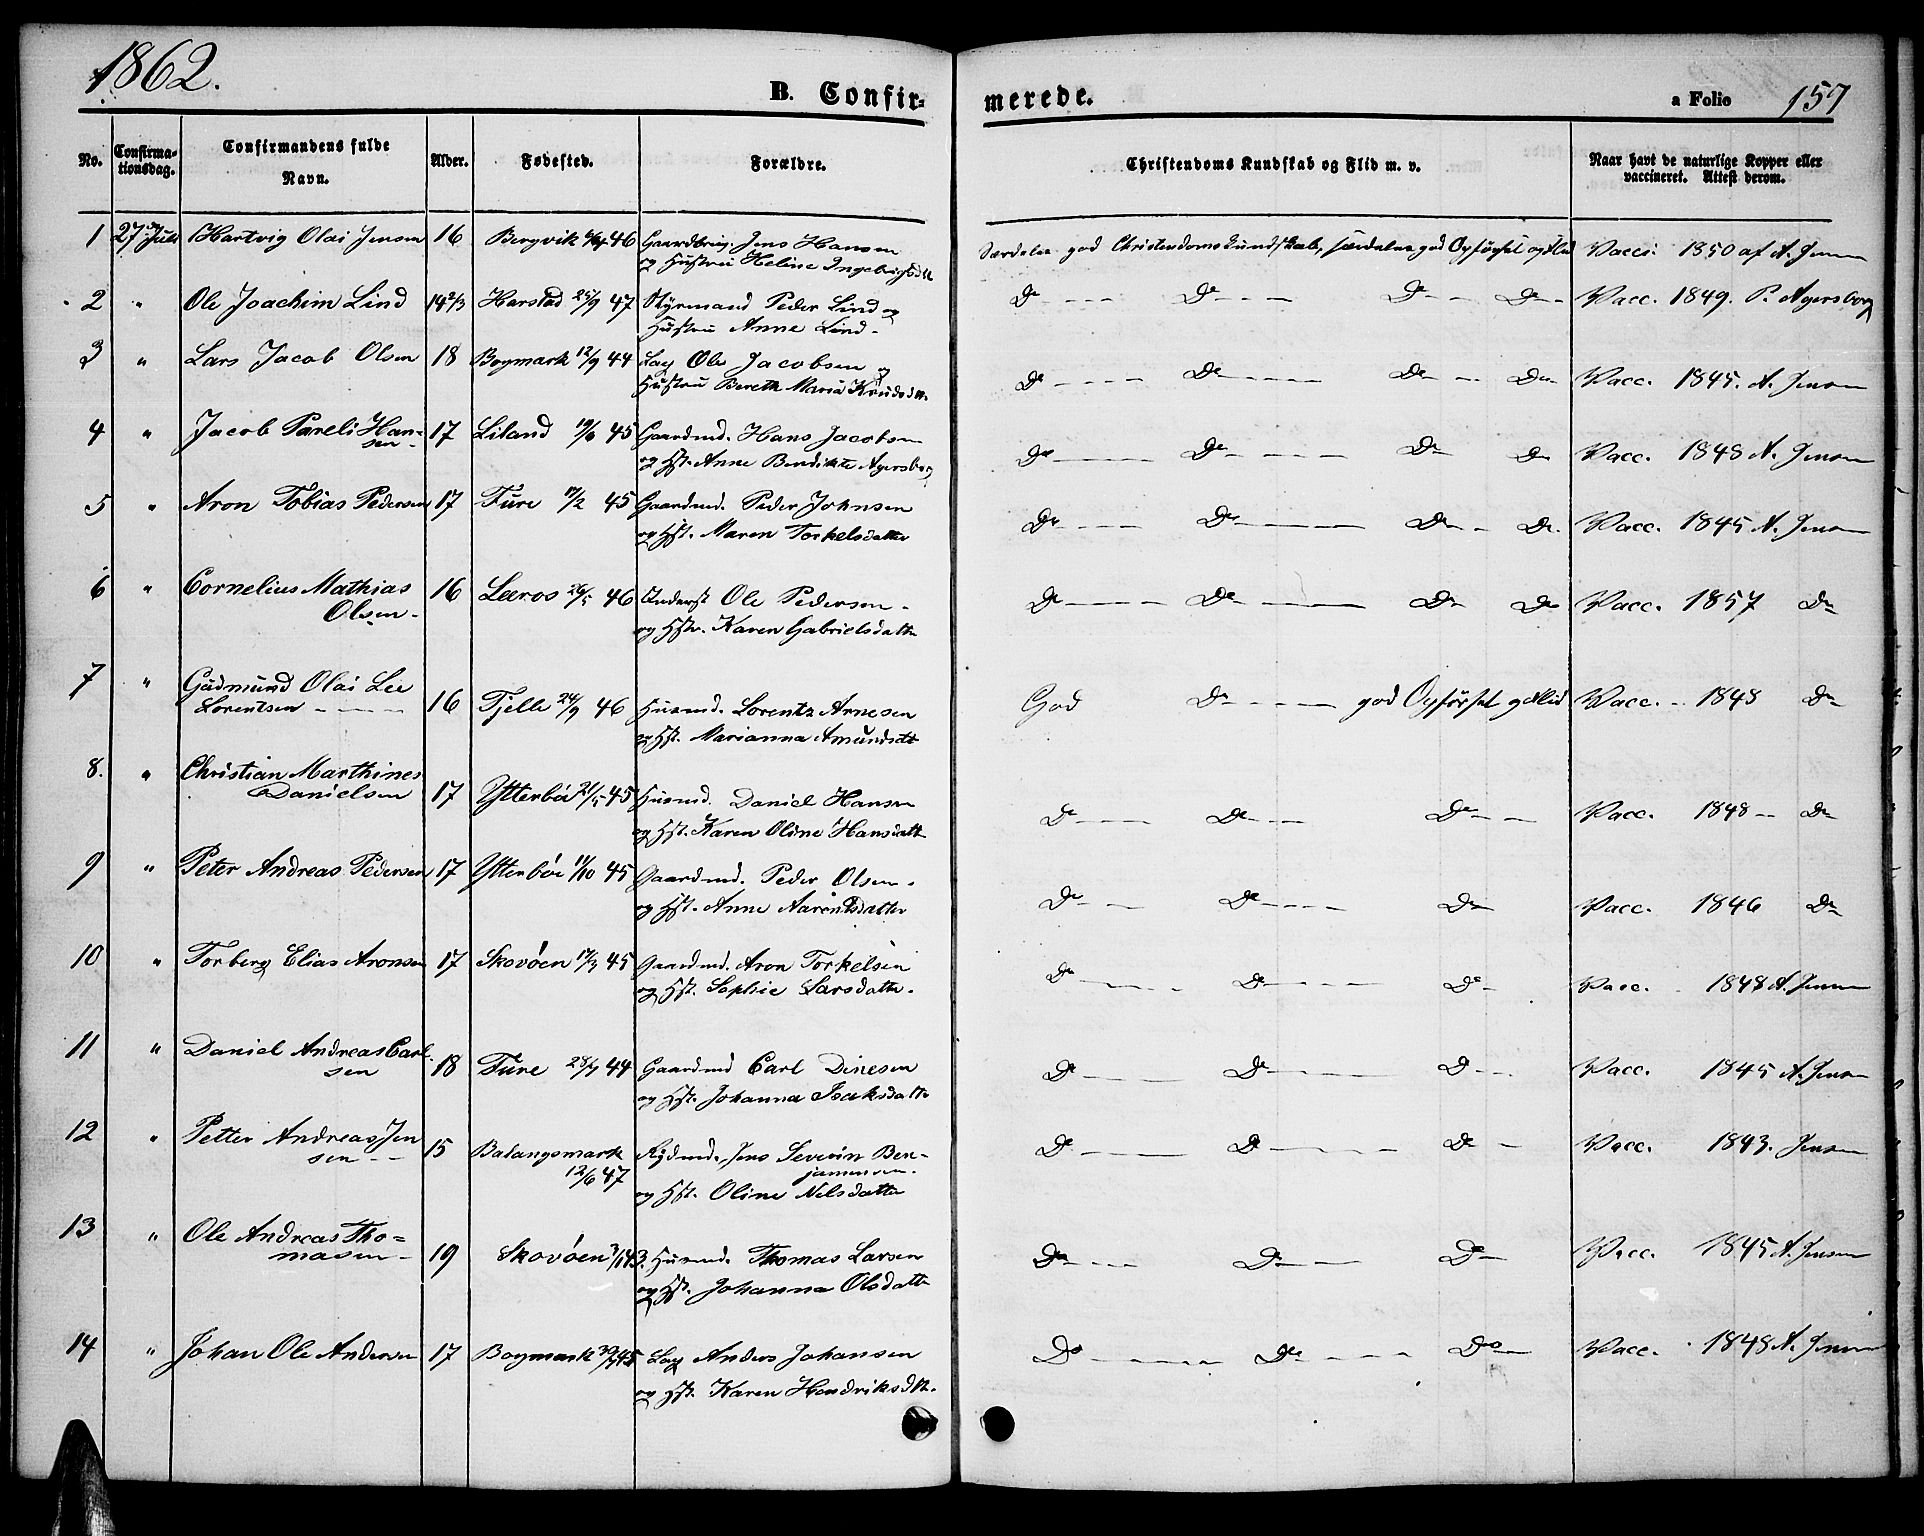 1862.
B. Confirmerede.
a Folio 157
No. Confirmationsdag. Confirmandens fulde Navn. Alder. Fødested. Forældre. Christendoms Kundskab og Flid m. v. Naar havt de naturlige Kopper eller vaccineret. Attest derom.
1 27 Juli Hartvig Olai Jensen 16 Bergvik 46 Gaardbrug. Jens Hansen Særdeles god Christendomskundskab, særdeles god Opførsel og Flid Vacc. 1850 af A. Jensen
og Hustru Heline Ingebrigtsdtt
2 " Ole Joachim Lind 14 2/3 Harstad 25/9 47 Styrmand Peder Lind og Do Do Do Do Vacc. 1849. P. Agersborg
Hustru Anne Lind.
3 " Lars Jacob Olsen 18 Bogmark 12/9 44 Lap Ole Jacobsen og Do Do Do Do Vacc. 1845. A. Jensen
Hustru Bereth Maria Knudsdtt.
4 " Jacob Pareli Han= 17 Liland 19/6 45 Gaardmd. Hans Jacobsen Do Do Do Do Vacc. 1848 A. Jensen
sen og Hst. Anne Bendikte Agersborg
5 " Aron Tobias Pedersen 17 Ture 17/2 45 Gaardmd. Peder Johnsen Do Do Do Do Vacc. 1845 A. Jensen
og Hst. Maren Torkelsdatter
6 " Cornelius Mathias 16 Leeros 26/5 46 Ole Pedersen. Do Do Do Do Vacc. 1857 Do
Olsen. og Hst. Karen Gabrielsdatter
7 " Gudmund Olai Lee
Lorentsen 16 Tjelle 24/9 46 Husmd. Lorentz Arnesen God Do god Opførsel og Flid Vacc. 1848 Do
og Hst. Marianna Amundsdtt
8. " Christian Marthines
Danielsen 17 Ytterbøe 21/5 45 Husmd. Daniel Hansen Do Do Do Vacc. 1848 Do
og Hst. Karen Oline Hansdatt
9 " Peter Andreas Pedersen 17 Ytterbøe 11/10 45 Gaardmd. Peder Olsen. Do Do Do Vacc. 1846 Do
og Hst. Anne Aarentsdatter
10 " Torberg Elias Aronsen 17 Skovøen 17/3 45 Gaardmd. Aron Torkelsen Do Do Do Vacc. 1848 A. Jensen
og Hst. Sophie Larsdatter.
11 " Daniel Andreas Carl-
sen 18 Ture 44 Gaardmd Carl Dinesen Do Do Do Vacc. 1845 A. Jensen
og Hst. Johanna Isaksdatter
12 " Petter Andreas Jen
sen 15 Balangsmark Rydmd. Jens Severin Ben- Do Do Do Vacc. 1843. Jensen
12/6 47 jaminsen.
og Hst. Oline Nilsdatter
13 " Ole Andreas Tho=
masen 19 Skovøen 3/1 43. Husmd. Thomas Larsen Do Do Do Vacc. 1845 A. Jensen
og Hst. Johanna Olsdatt
14 " Johan Ole Andersen 17 Bogmark 45 Lap Anders Johansen Do Do Do Vacc. 1848 A. Jensen
og Hst. Karen Hendriksdtt.